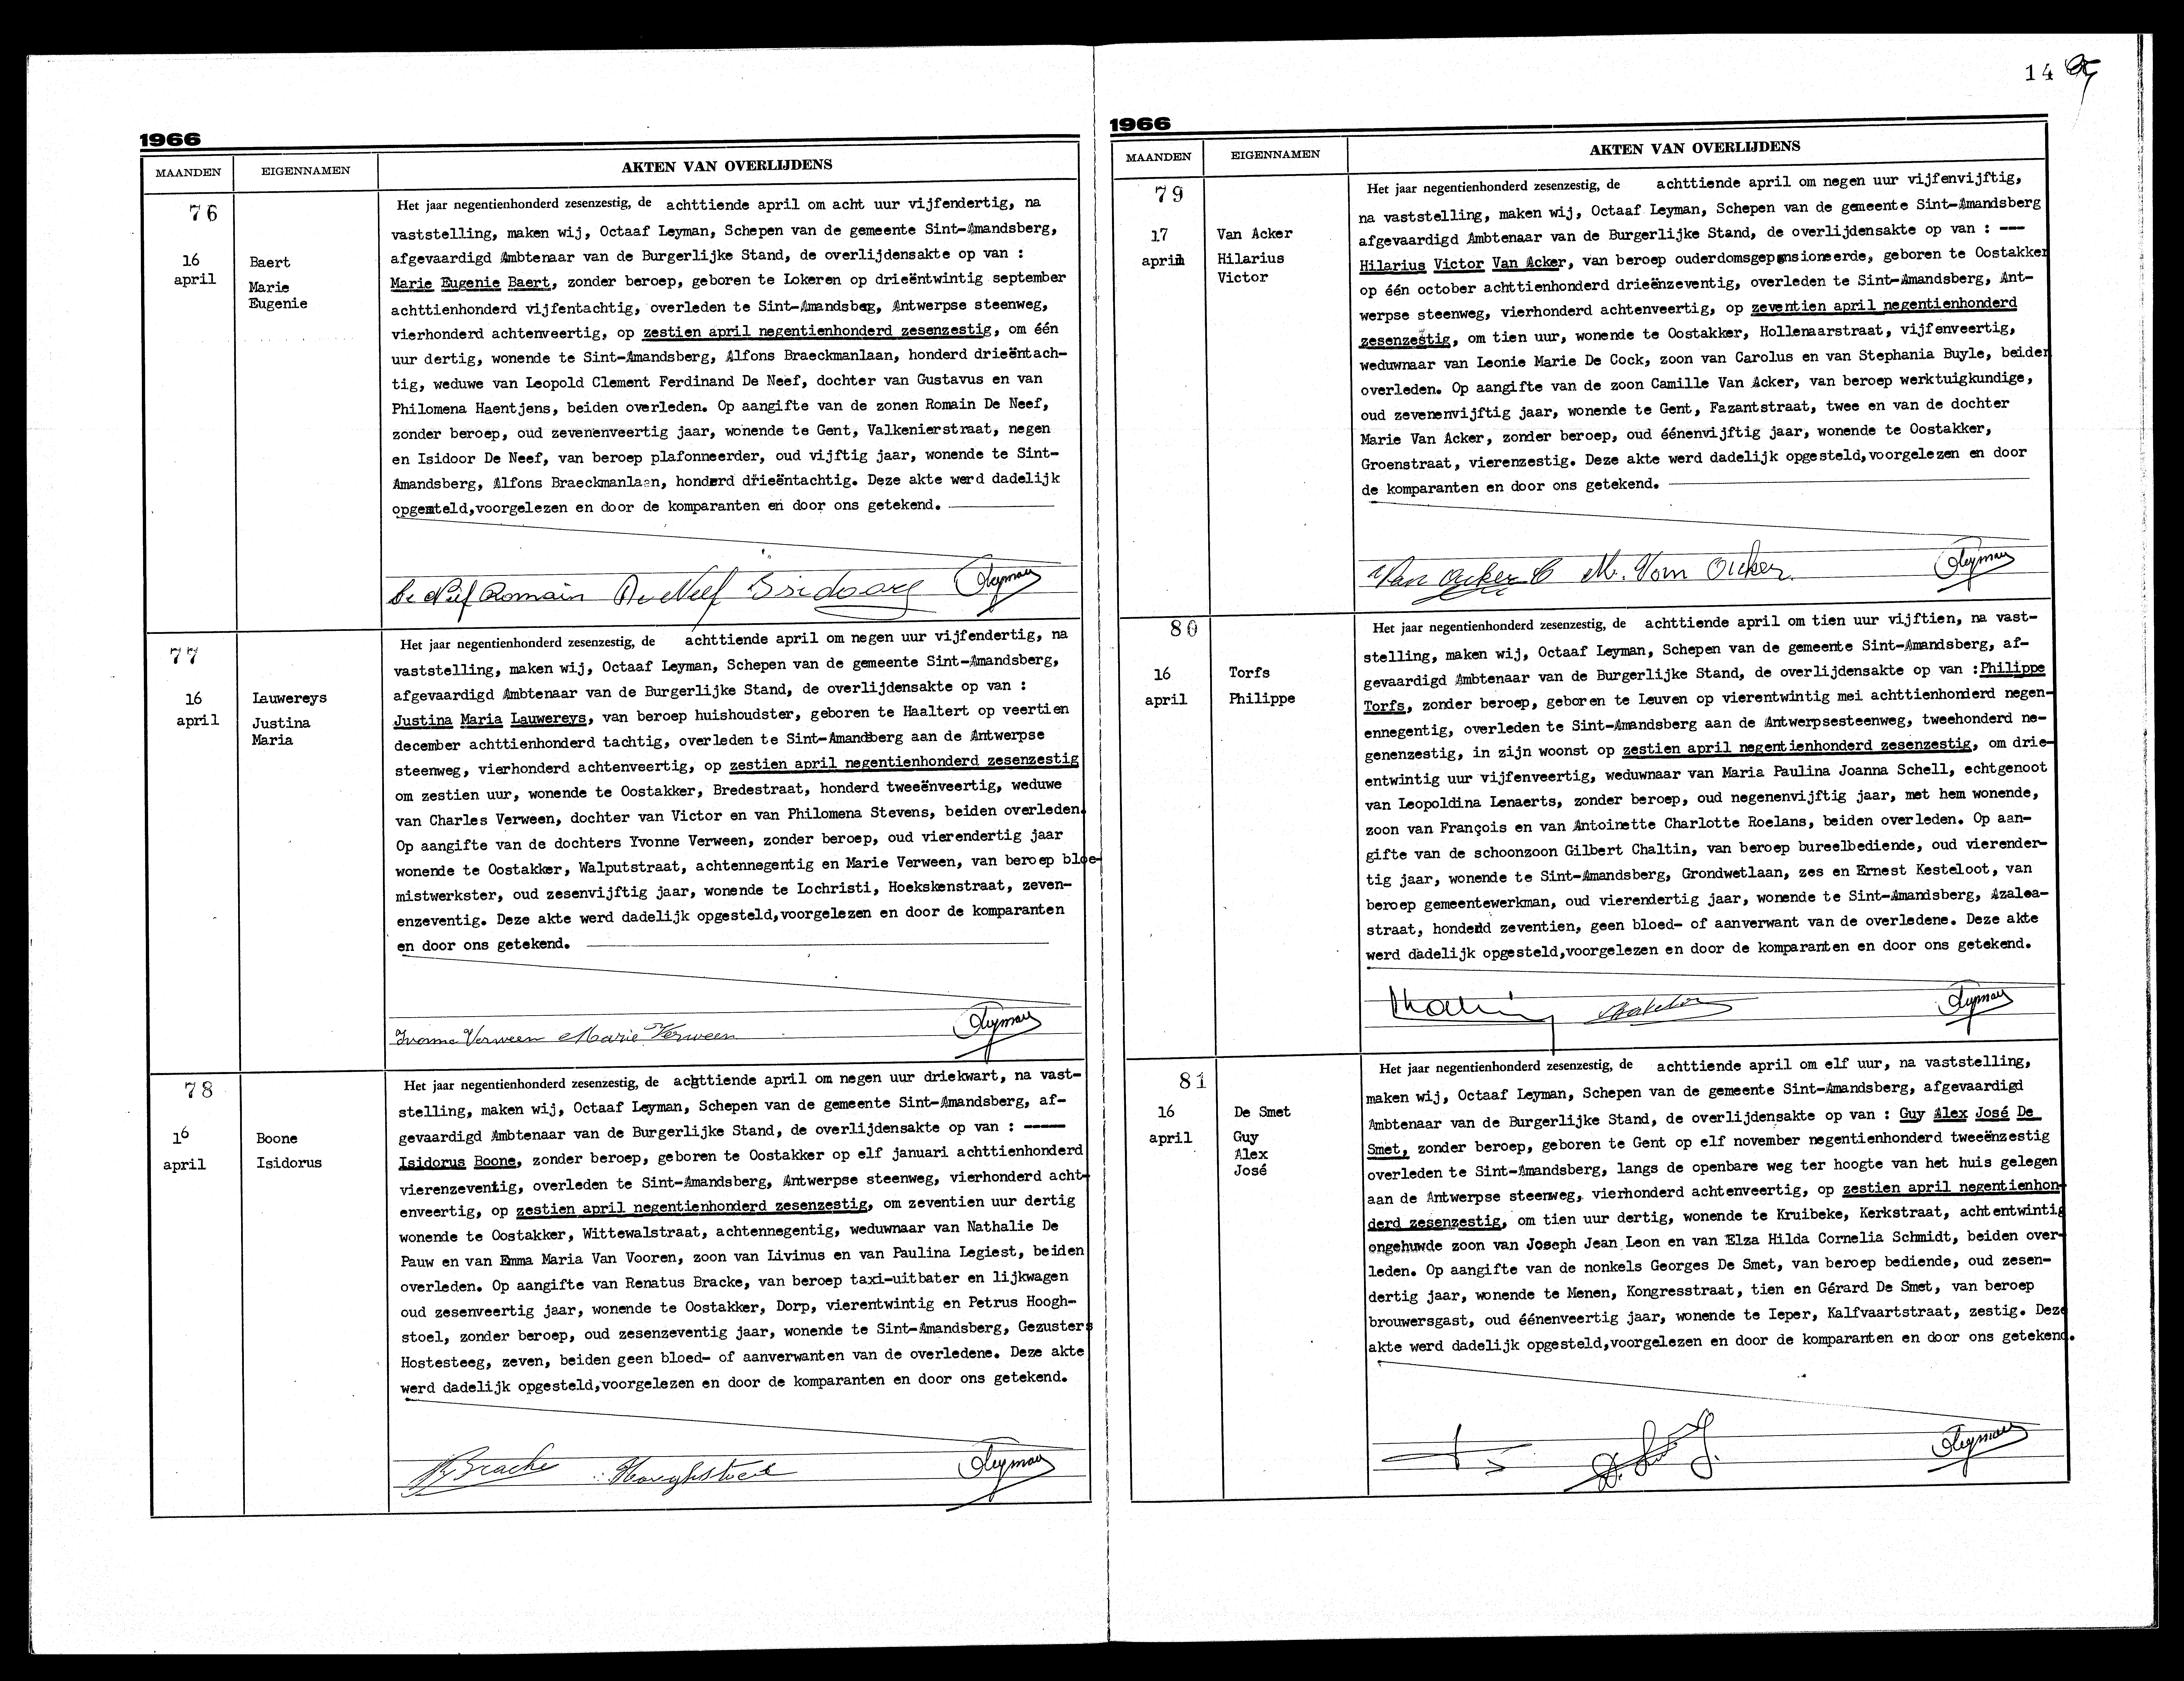 14
1966
MAANDEN
EIGENNAMEN
AKTEN VAN OVERLIJDENS
76
16
april
Baert
Marie
Eugenie
Het jaar negentienhonderd zesenzestig, de achttiende april om acht uur vijfendertig, na
vaststelling, maken wij, Octaaf Leyman, Schepen van de gemeente Sint-Amandsberg,
afgevaardigd Ambtenaar van de Burgerlijke Stand, de overlijdensakte op van :
Marie Eugenie Baert, zonder beroep, geboren te Lokeren op drieëntwintig september
achttienhonderd vijfentachtig, overleden te Sint-Amandsbeg, Antwerpse steenweg,
vierhonderd achtenveertig, op zestien april negentienhonderd zesenzestig, om één
uur dertig, wonende te Sint-Amandsberg, Alfons Braeckmanlaan, honderd drieëntach-
tig, weduwe van Leopold Clement Ferdinand De Neef, dochter van Gustavus en van
Philomena Haentjens, beiden overleden. Op aangifte van de zonen Romain De Neef,
zonder beroep, oud zevenenveertig jaar, wonende te Gent, Valkenierstraat, negen
en Isidoor De Neef, van beroep plafonneerder, oud vijftig jaar, wonende te Sint-
Amandsberg, Alfons Braeckmanlaan, honderd drieëntachtig. Deze akte werd dadelijk
opgesteld,voorgelezen en door de komparanten en door ons getekend.
De Neef Romain De Neef Isidoor OLeyman
77
16
april
Lauwereys
Justina
Maria
Het jaar negentienhonderd zesenzestig, de achttiende april om negen uur vijfendertig, na
vaststelling, maken wij, Octaaf Leyman, Schepen van de gemeente Sint-Amandsberg,
afgevaardigd Ambtenaar van de Burgerlijke Stand, de overlijdensakte op van :
Justina Maria Lauwereys, van beroep huishoudster, geboren te Haaltert op veertien
december achttienhonderd tachtig, overleden te Sint-Amandberg aan de Antwerpse
steenweg, vierhonderd achtenveertig, op zestien april negentienhonderd zesenzestig
om zestien uur, wonende te Oostakker, Bredestraat, honderd tweeënveertig, weduwe
van Charles Verween, dochter van Victor en van Philomena Stevens, beiden overleden.
Op aangifte van de dochters Yvonne Verween, zonder beroep, oud vierendertig jaar
wonende te Oostakker, Walputstraat, achtennegentig en Marie Verween, van beroep bloe-
mistwerkster, oud zesenvijftig jaar, wonende te Lochristi, Hoekskenstraat, zeven-
enzeventig. Deze akte werd dadelijk opgesteld,voorgelezen en door de komparanten
en door ons getekend.
Yvonne Verween Marie Verween OLeyman
78
16
april
Boone
Isidorus
Het jaar negentienhonderd zesenzestig, de achttiende april om negen uur driekwart, na vast-
stelling, maken wij, Octaaf Leyman, Schepen van de gemeente Sint-Amandsberg, af-
gevaardigd Ambtenaar van de Burgerlijke Stand, de overlijdensakte op van : -----
Isidorus Boone, zonder beroep, geboren te Oostakker op elf januari achttienhonderd
vierenzeventig, overleden te Sint-Amandsberg, Antwerpse steenweg, vierhonderd acht-
enveertig, op zestien april negentienhonderd zesenzestig, om zeventien uur dertig
wonende te Oostakker, Wittewalstraat, achtennegentig, weduwnaar van Nathalie De
Pauw en van Emma Maria Van Vooren, zoon van Livinus en van Paulina Legiest, beiden
overleden. Op aangifte van Renatus Bracke, van beroep taxi-uitbater en lijkwagen
oud zesenveertig jaar, wonende te Oostakker, Dorp, vierentwintig en Petrus Hoogh-
stoel, zonder beroep, oud zesenzeventig jaar, wonende te Sint-Amandsberg, Gezusters
Hostesteeg, zeven, beiden geen bloed- of aanverwanten van de overledene. Deze akte
werd dadelijk opgesteld,voorgelezen en door de komparanten en door ons getekend.
R Bracke Hooghstoel OLeyman
1966
MAANDEN
EIGENNAMEN
AKTEN VAN OVERLIJDENS
79
17
april
Van Acker
Hilarius
Victor
Het jaar negentienhonderd zesenzestig, de achttiende april om negen uur vijfenvijftig,
na vaststelling, maken wij, Octaaf Leyman, Schepen van de gemeente Sint-Amandsberg
afgevaardigd Ambtenaar van de Burgerlijke Stand, de overlijdensakte op van : ---
Hilarius Victor Van Acker, van beroep ouderdomsgepensioneerde, geboren te Oostakker
op één october achttienhonderd drieënzeventig, overleden te Sint-Amandsberg, Ant-
werpse steenweg, vierhonderd achtenveertig, op zeventien april negentienhonderd
zesenzestig, om tien uur, wonende te Oostakker, Hollenaarstraat, vijfenveertig,
weduwnaar van Leonie Marie De Cock, zoon van Carolus en van Stephania Buyle, beiden
overleden. Op aangifte van de zoon Camille Van Acker, van beroep werktuigkundige,
oud zevenenvijftig jaar, wonende te Gent, Fazantstraat, twee en van de dochter
Marie Van Acker, zonder beroep, oud éénenvijftig jaar, wonende te Oostakker,
Groenstraat, vierenzestig. Deze akte werd dadelijk opgesteld,voorgelezen en door
de komparanten en door ons getekend.
Van Acker C M. Van Acker OLeyman
80
16
april
Torfs
Philippe
Het jaar negentienhonderd zesenzestig, de achttiende april om tien uur vijftien, na vast-
stelling, maken wij, Octaaf Leyman, Schepen van de gemeente Sint-Amandsberg, af-
gevaardigd Ambtenaar van de Burgerlijke Stand, de overlijdensakte op van :Philippe
Torfs, zonder beroep, geboren te Leuven op vierentwintig mei achttienhonderd negen-
ennegentig, overleden te Sint-Amandsberg aan de Antwerpsesteenweg, tweehonderd ne-
genenzestig, in zijn woonst op zestien april negentienhonderd zesenzestig, om drie-
entwintig uur vijfenveertig, weduwnaar van Maria Paulina Joanna Schell, echtgenoot
van Leopoldina Lenaerts, zonder beroep, oud negenenvijftig jaar, met hem wonende,
zoon van François en van Antoinette Charlotte Roelans, beiden overleden. Op aan-
gifte van de schoonzoon Gilbert Chaltin, van beroep bureelbediende, oud vierender-
tig jaar, wonende te Sint-Amandsberg, Grondwetlaan, zes en Ernest Kesteloot, van
beroep gemeentewerkman, oud vierendertig jaar, wonende te Sint-Amandsberg, Azalea-
straat, honderd zeventien, geen bloed- of aanverwant van de overledene. Deze akte
werd dadelijk opgesteld,voorgelezen en door de komparanten en door ons getekend.
OLeyman
81
16
april
De Smet
Guy
Alex
José
Het jaar negentienhonderd zesenzestig, de achttiende april om elf uur, na vaststelling,
maken wij, Octaaf Leyman, Schepen van de gemeente Sint-Amandsberg, afgevaardigd
Ambtenaar van de Burgerlijke Stand, de overlijdensakte op van : Guy Alex José De
Smet, zonder beroep, geboren te Gent op elf november negentienhonderd tweeënzestig
overleden te Sint-Amandsberg, langs de openbare weg ter hoogte van het huis gelegen
aan de Antwerpse steenweg, vierhonderd achtenveertig, op zestien april negentienhon-
derd zesenzestig, om tien uur dertig, wonende te Kruibeke, Kerkstraat, achtentwintig
ongehuwde zoon van Joseph Jean Leon en van Elza Hilda Cornelia Schmidt, beiden over-
leden. Op aangifte van de nonkels Georges De Smet, van beroep bediende, oud zesen-
dertig jaar, wonende te Menen, Kongresstraat, tien en Gérard De Smet, van beroep
brouwersgast, oud éénenveertig jaar, wonende te Ieper, Kalfvaartstraat, zestig. Deze
akte werd dadelijk opgesteld,voorgelezen en door de komparanten en door ons getekend.
OLeyman